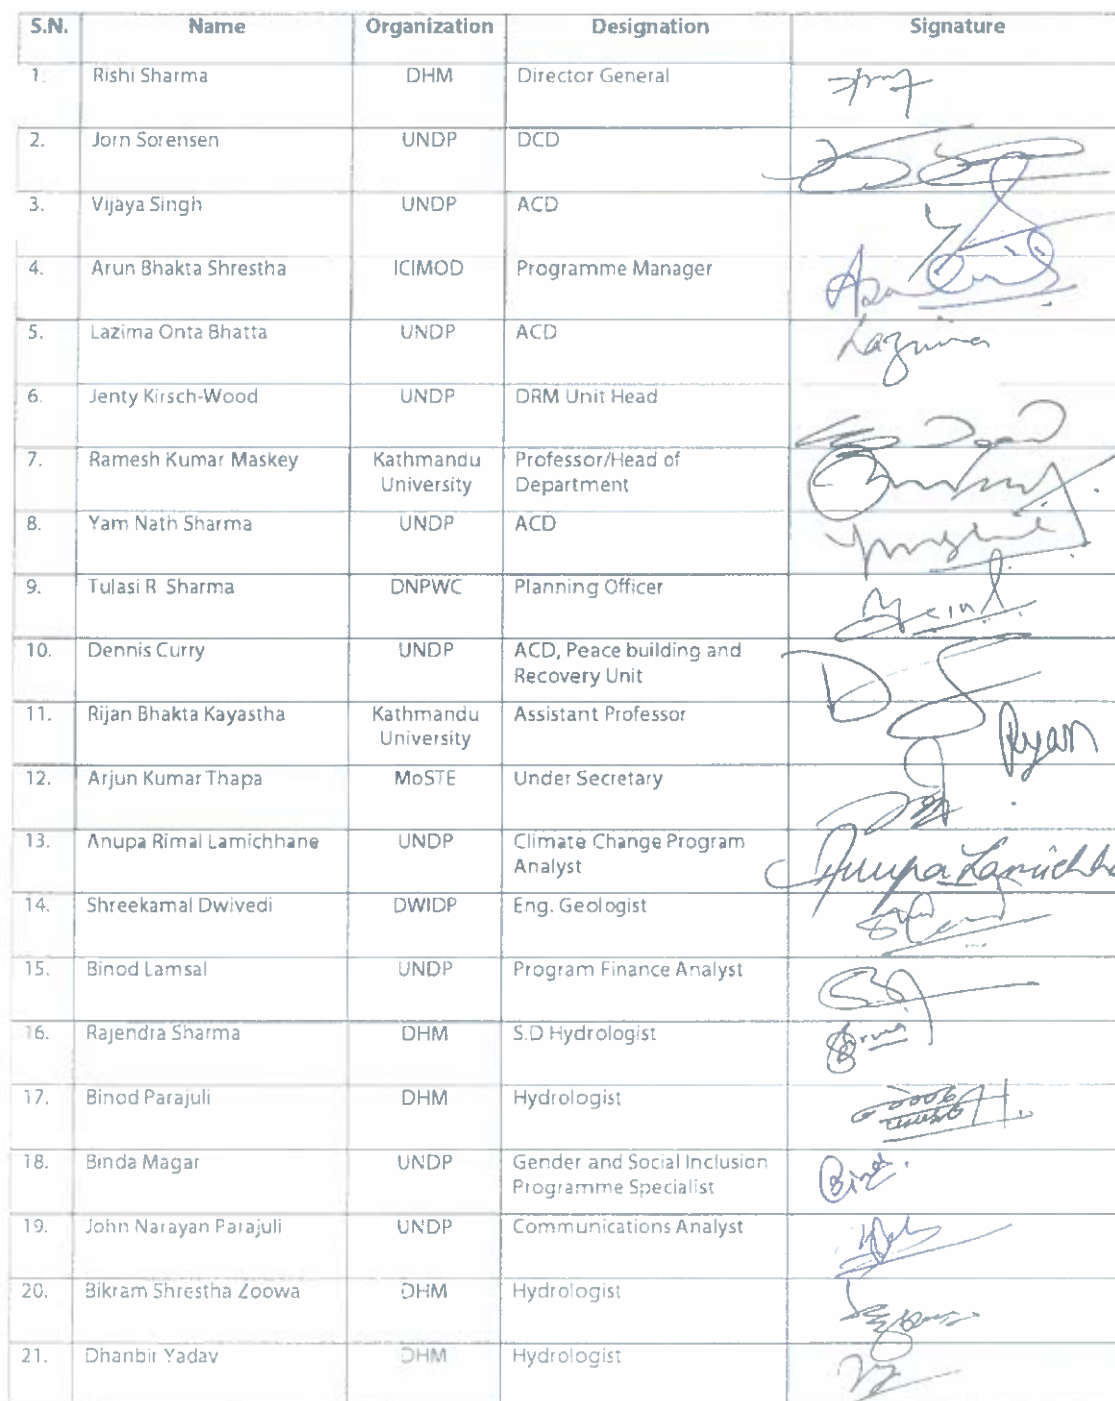 S.N. Name Organization Designation Signature
1. Rishi Sharma DHM Director General
2. Jorn Sorensen UNDP DCD
3. Vijaya Singh UNDP ACD
4. Arun Bhakta Shrestha ICIMOD Programme Manager
5. Lazima Onta Bhatta UNDP ACD Lazima
6. Jenty Kirsch-Wood UNDP DRM Unit Head
7. Ramesh Kumar Maskey Kathmandu University Professor/Head of Department
8. Yam Nath Sharma UNDP ACD
9. Tulasi R Sharma DNPWC Planning Officer
10. Dennis Curry UNDP ACD, Peace building and Recovery Unit
11. Rijan Bhakta Kayastha Kathmandu University Assistant Professor
12. Arjun Kumar Thapa MoSTE Under Secretary
13. Anupa Rimal Lamichhane UNDP Climate Change Program Analyst Anupa
14. Shreekamal Dwivedi DWIDP Eng. Geologist
15. Binod Lamsal UNDP Program Finance Analyst
16. Rajendra Sharma DHM S.D Hydrologist
17. Binod Parajuli DHM Hydrologist
18. Binda Magar UNDP Gender and Social Inclusion Programme Specialist
19. John Narayan Parajuli UNDP Communications Analyst
20. Bikram Shrestha Zoowa DHM Hydrologist
21. Dhanbir Yadav DHM Hydrologist